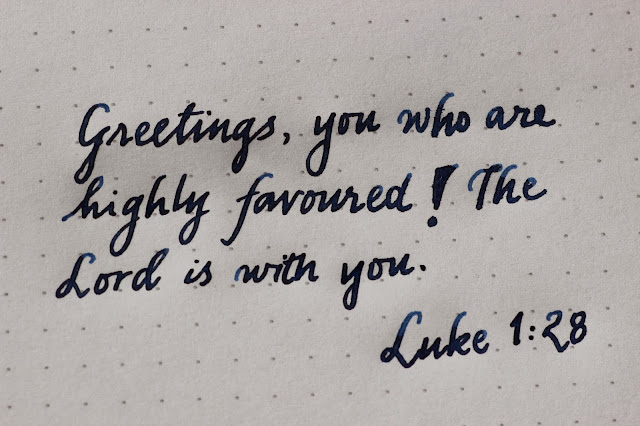 Greetings, you who are
highly favoured! The
Lord is with you.
Luke 1:28